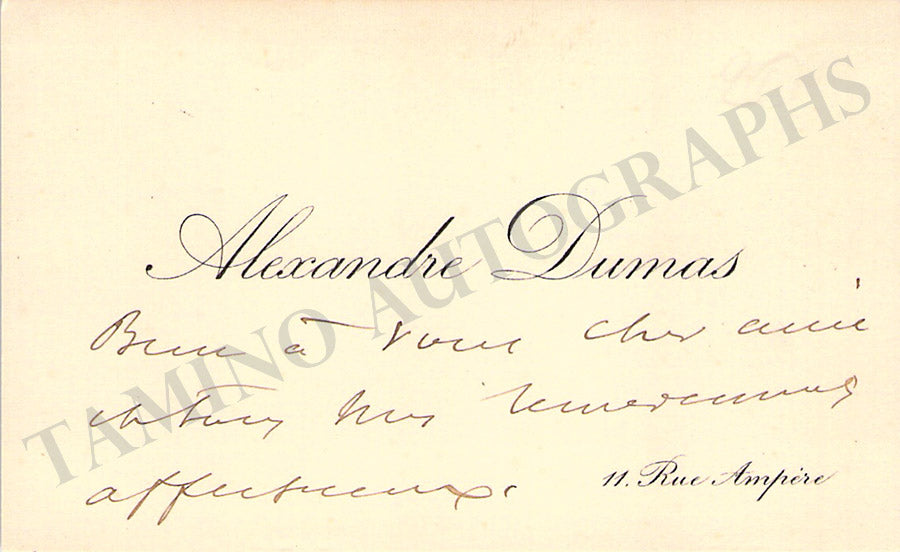 Alexandre Dumas
Bien à vous cher ami
et tous mes remerciements
affectueux.
11. Rue Ampère
TAMINO AUTOGRAPHS